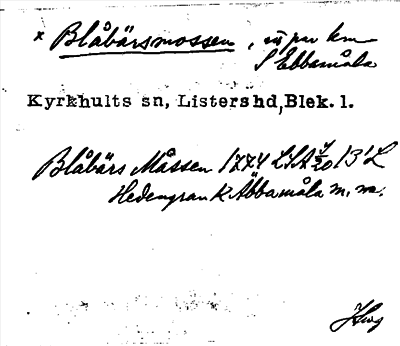 × Blåbärsmossen, ett par km
S Ebbamåla
Kyrkhults sn, Listershd, Blek. l.
Blåbärs Måssen 1774 LSA 13'L
Hedengran k Äbbamåla m. m.